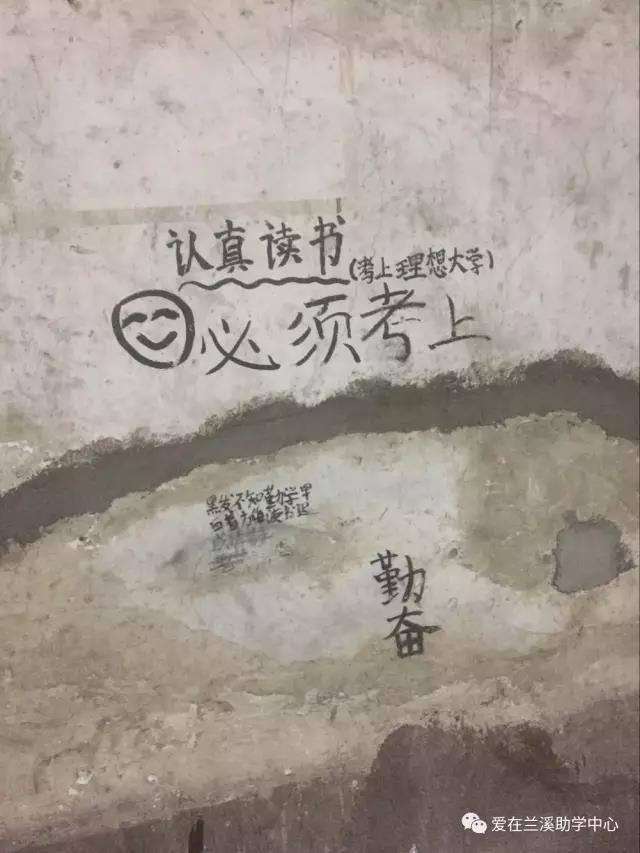 认真读书
(考上理想大学)
必须考上
黑发不知勤学早
白首方悔读书迟
勤
奋
爱在兰溪助学中心